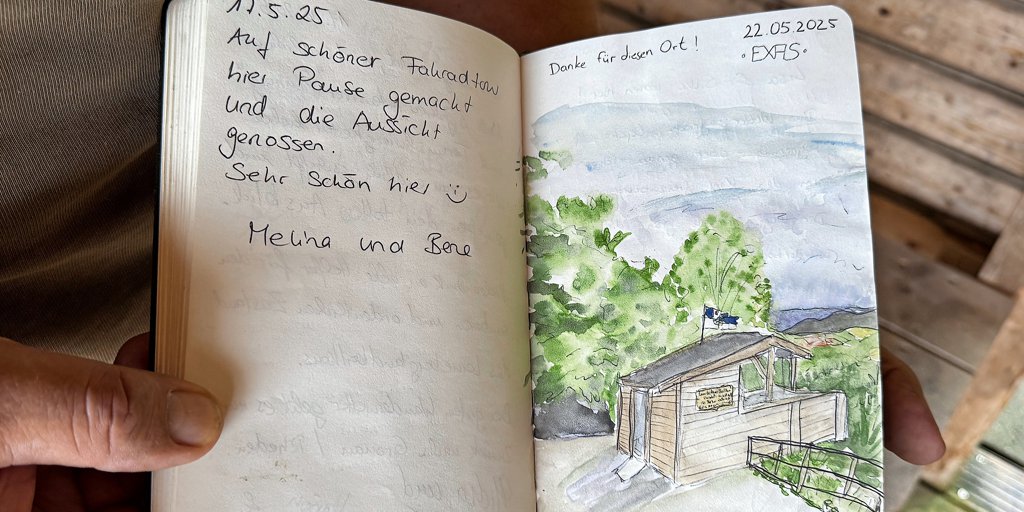 11.5.25
Auf schöner Fahradtour
hier Pause gemacht
und die Aussicht
genossen.
Sehr schön hier :)
Melina und Bene
22.05.2025
Danke für diesen Ort!